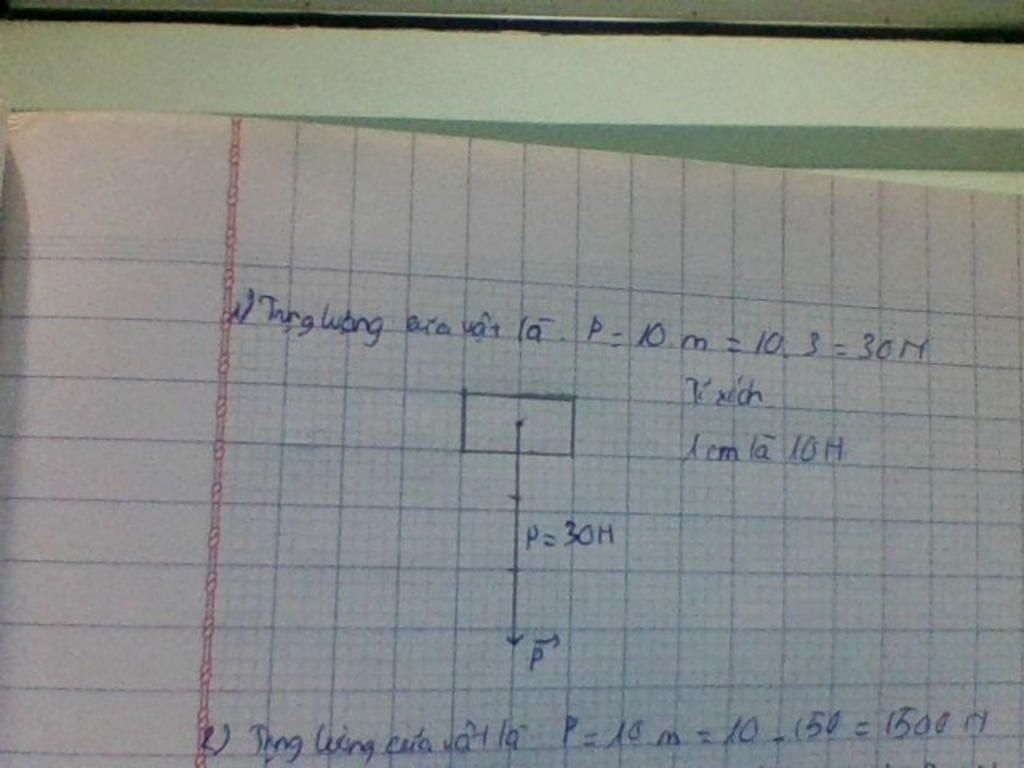 1) Trọng lượng của vật là : P = 10 m = 10. 3 = 30N
Tỉ xích
1 cm là 10N
P = 30N
P
2) Trọng lượng của vật là P = 10 m = 10 . 150 = 1500 N